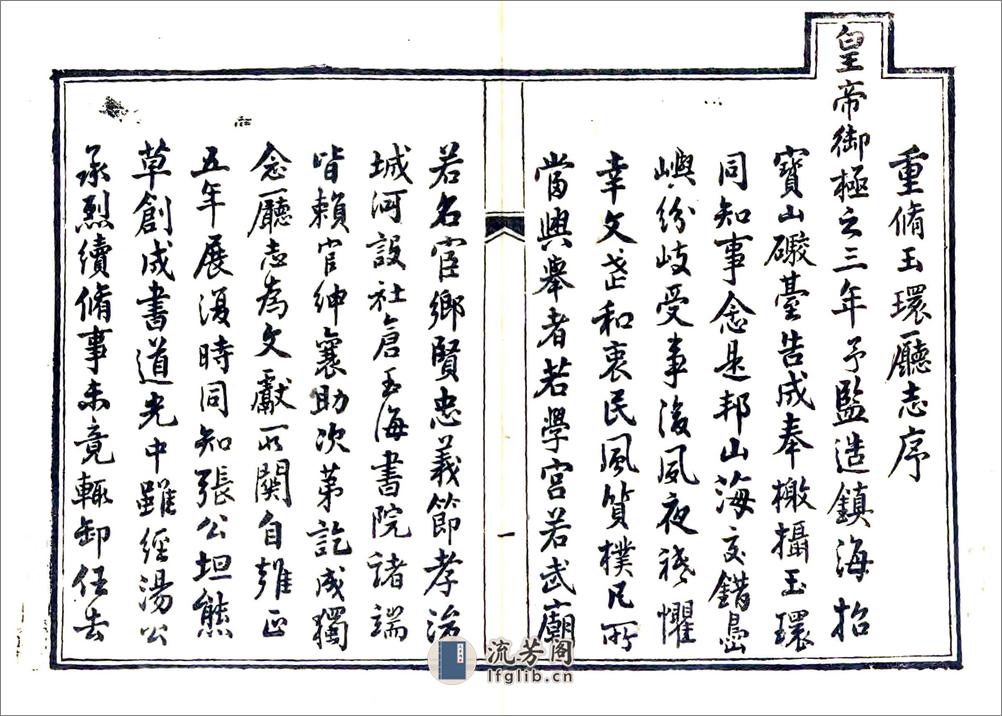 重脩玉環廳志序
皇帝御極之三年予監造鎮海招
寶山礮臺告成奉檄攝玉環
同知事念是邦山海交錯島
嶼紛岐受事後夙夜祗懼
幸文武和衷民風質樸凡所
當興舉者若學宮若武廟
一
若名宦鄉賢忠義節孝濬
城河設社倉玉海書院諸端
皆賴官紳襄助次第訖成獨
念廳志為文獻所關自雍正
五年展復時同知張公坦熊
草創成書道光中雖經湯公
承烈續脩事未竟輒卸任去
流芳阁
lfglib.cn